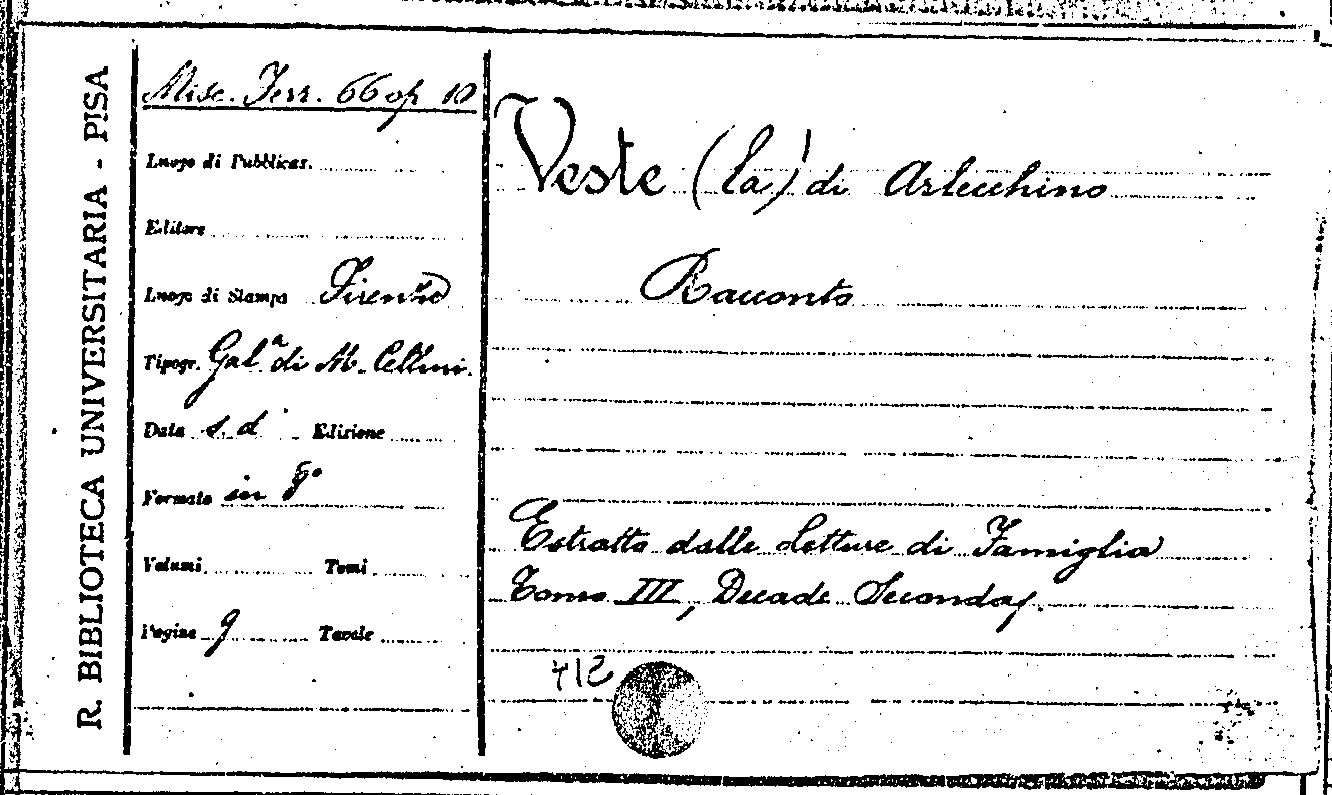 R. BIBLIOTECA UNIVERSITARIA - PISA
Misc. Ferr. 66 op 10
Luogo di Pubblicaz.
Editore
Luogo di Stampa Firenze
Tipogr. Gal.ª di M. Cellini.
Data s. d. Edizione
Formato in 8°
Volumi Tomi
Pagine 9 Tavole
Veste (la) di Arlecchino
Racconto
Estratto dalle Letture di Famiglia
Tomo III, Decade Seconda